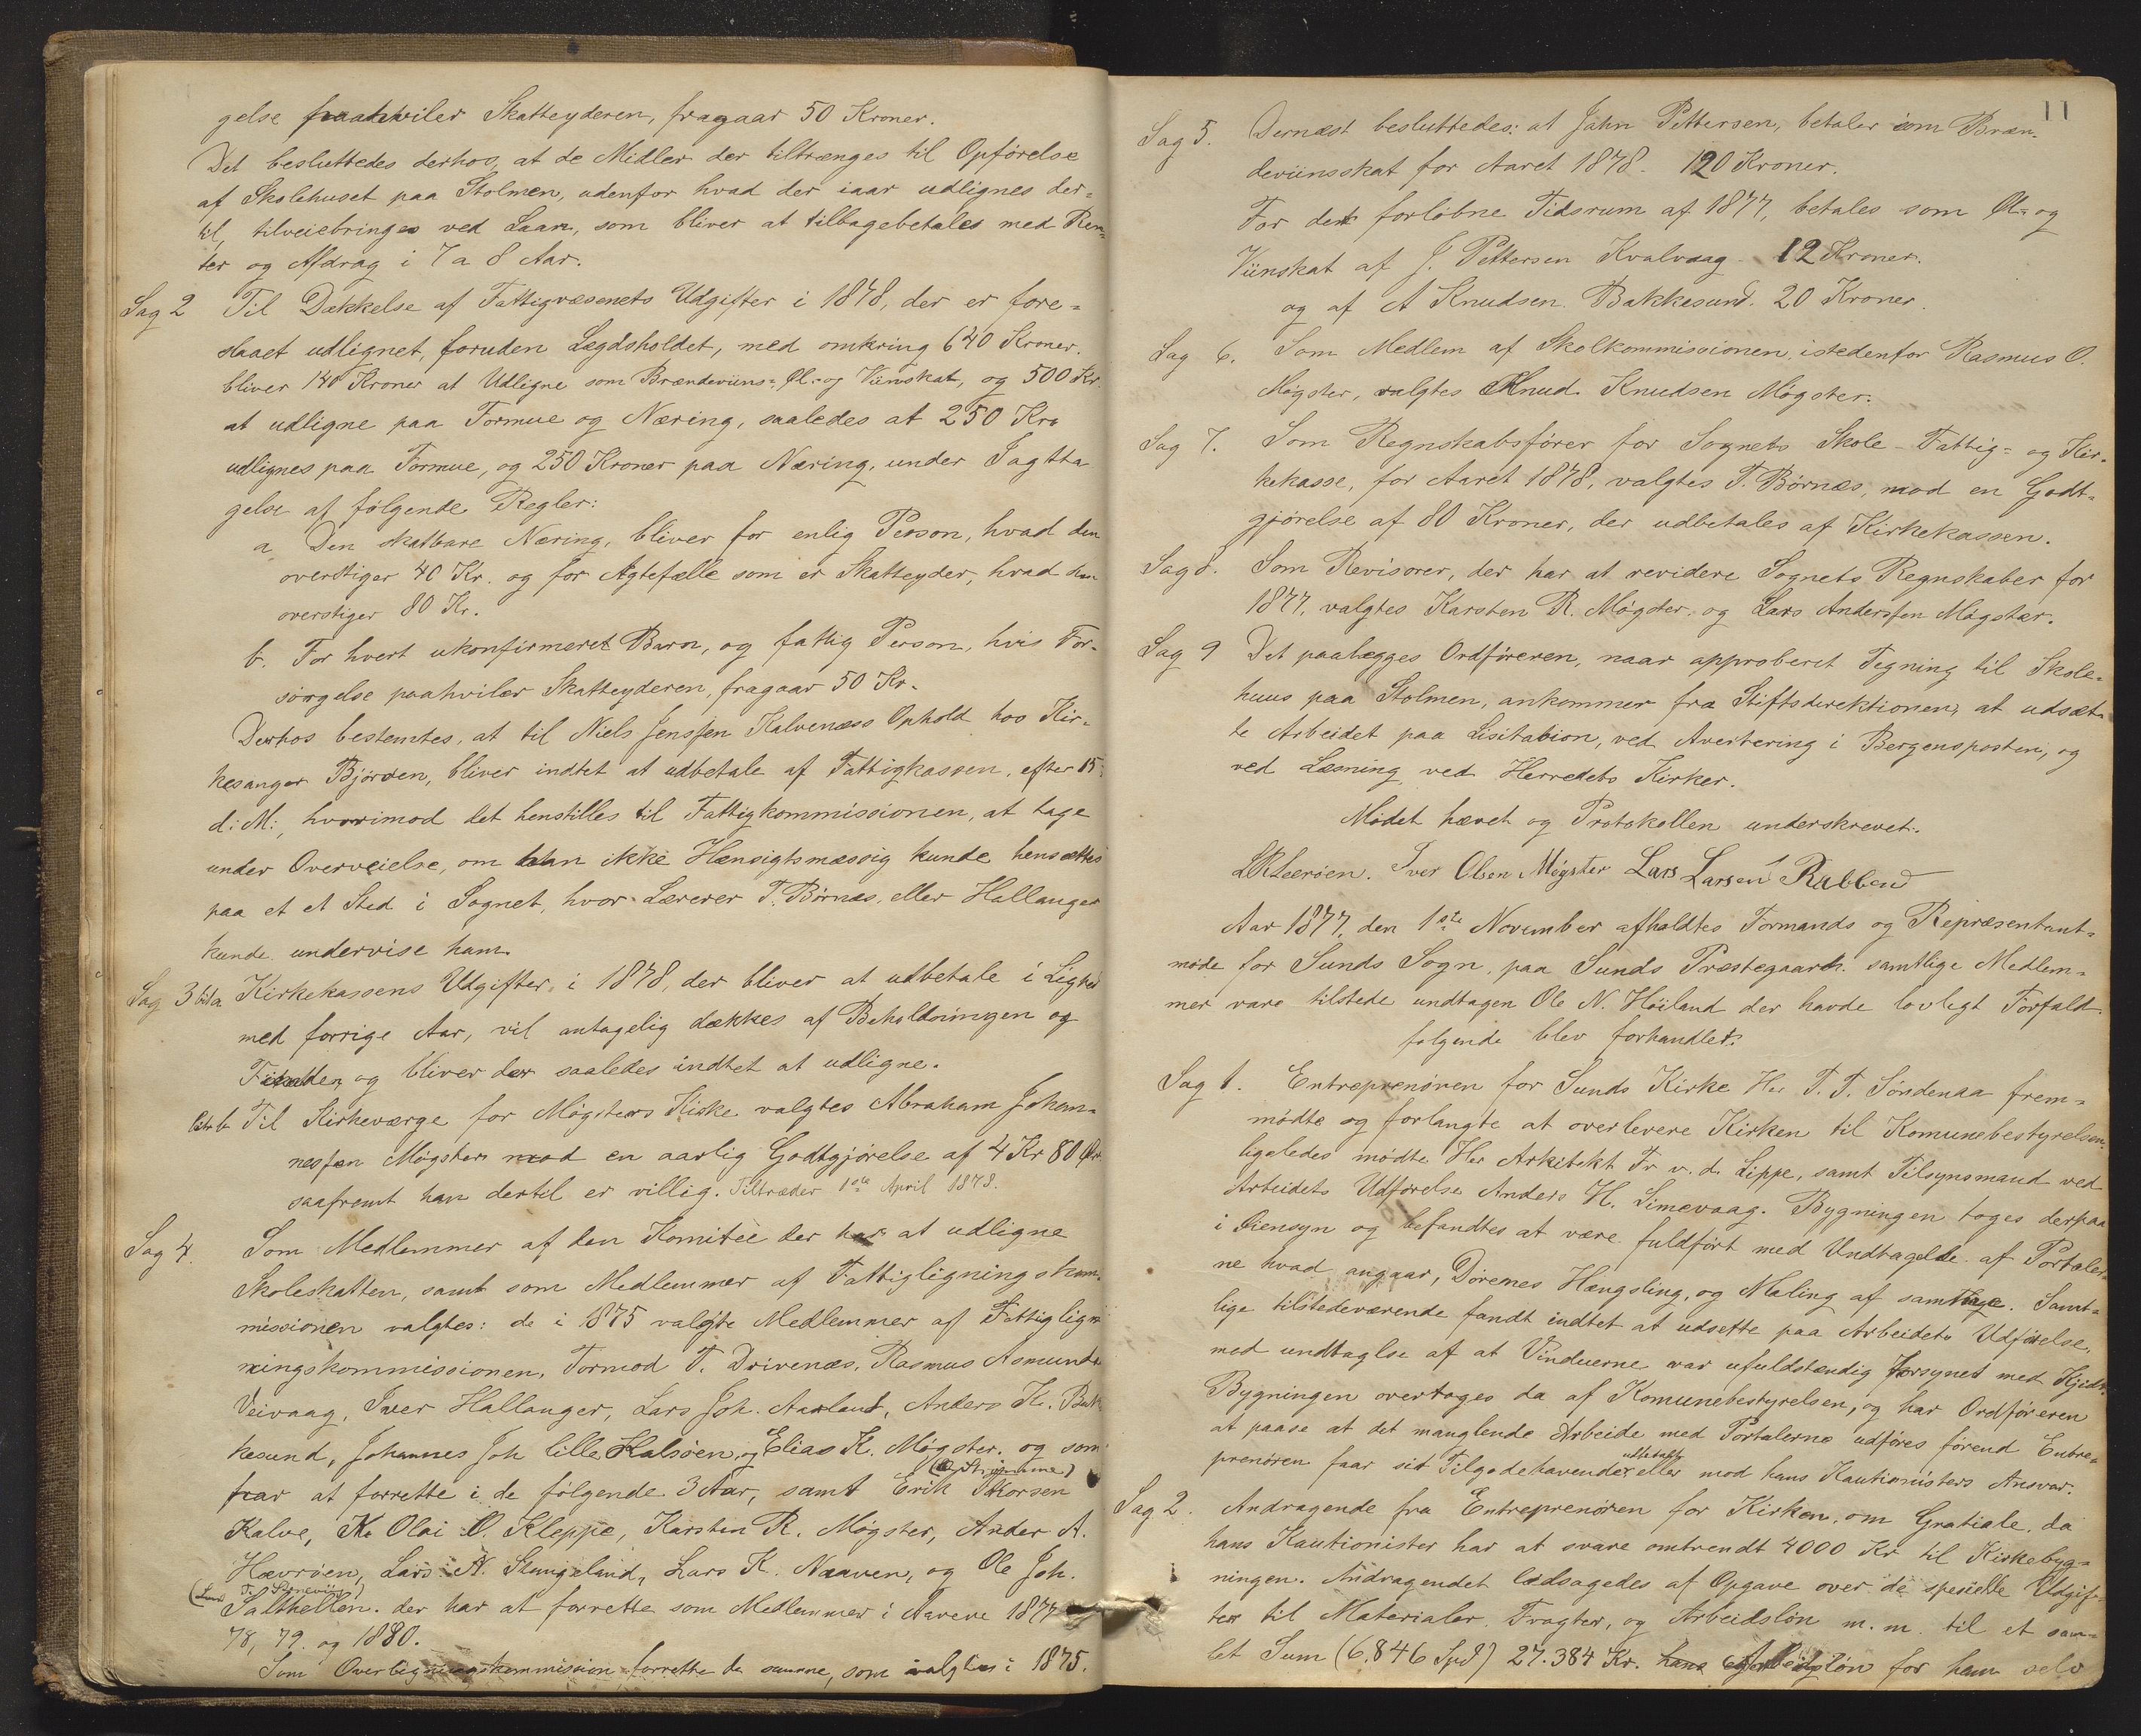 gelse paahviler Skatteyderen, fragaar 50 Kroner.
Det besluttedes derhos, at de Midler der tiltrænges til Opförelse
af Skolehuset paa Stolmen, udenfor hvad der iaar udlignes der-
til, tilveiebringes ved Laan, som bliver at tilbagebetales med Ren-
ter og Afdrag i 7 a 8 Aar.
Sag 2 Til Dækkelse af Fattigvæsenets Udgifter i 1878, der er fore-
slaaet udlignet, foruden Lægdsholdet, med omkring 640 Kroner.
bliver 140 Kroner at Udligne som Brændeviins-, Øl- og Viinskat, og 500 Kr.
at udligne paa Formue og Næring, saaledes at 250 Kro
udlignes paa Formue, og 250 Kroner paa Næring, under Iagtta
gelse af følgende Regler:
a Den skatbare Næring, bliver for enlig Person, hvad den
overstiger 40 Kr. og for Ægtefælle som er Skatteyder, hvad han
overstiger 80 Kr.
b. For hvert ukonfirmeret Barn, og fattig Person, hvis For-
sörgelse paahviler Skatteyderen, fragaar 50 Kr.
Derhos bestemtes, at til Niels Jenssen Kalvenæss Ophold hos Kir-
kesanger Björöen, bliver indtet at udbetale af Fattigkassen, efter 15
d: M:, hvorimod det henstilles til Fattigkommissionen, at tage
under Overveielse, om han ikke Hensigtsmæssig kunde hensættes
paa et et Sted i Sognet, hvor Lærerer T. Börnæs, eller Hallanger
kunde undervise ham.
Sag 3 lit a Kirkekassens Udgifter, i 1878, der bliver at udbetale i Lighed
med forrige Aar, vil antagelig dækkes af Beholdningen og
Tienden, og bliver der saaledes indtet at udligne.
litr b Til Kirkeværge for Møgsters Kirke valgtes Abraham Johan-
nessen Møgster mod en aarlig Godtgjörelse af 4 Kr 80 Ør.
saafremt han dertil er villig. Tiltræder 1ste April 1878.
Sag 4. Som Medlemmer af den Komitèe der har at udligne
Skoleskatten, samt som Medlemmer af Fattigligningskom-
missionen valgtes: de i 1875 valgte Medlemmer af Fattiglign
ningskommissionen, Tormod T. Drivenæs, Rasmus Asmunds.
Veivaag, Iver Hallanger, Lars Joh. Aarland, Anders K. Bak
kesund, Johannes Joh lille Kalsöen, og Elias K. Møgster. og som
har at forrette i de fölgende 3 Aar, samt Erik Thorsen
Kalve, K. Olai O. Kleppe, Karsten R. Møgster, Ander A.
Hævröen, Lars A. Stangeland, Lars K. Naaven, og Ole Joh.
Salthellen. der har at forrette som Medlemmer i Aarene 1877
78, 79. og 1880.
Som Overligningskommission forrette de samme, som valgtes i 1875.
11
Sag 5. Dernæst besluttedes: at Jahn Pettersen, betaler som Bræn-
deviinsskat for Aaret 1878. 120 Kroner.
For det forlöbne Tidsrum af 1877, betales som Øl- og
Viinskat af J. Pettersen Kvalvaag 12 Kroner.
og af A Knudsen Bakkesund. 20 Kroner.
Sag 6. Som Medlem af Skolkommissionen, istedenfor Rasmus O.
Møgster, valgtes Knud Knudsen Møgster.
Sag 7. Som Regnskabsförer for Sognets Skole- Fattig- og Kir-
kekasse, for Aaret 1878, valgtes T. Børnæs, mod en Godt-
gjörelse af 80 Kroner, der udbetales af Kirkekassen.
Sag 8. Som Revisorer, der har at revidere Sognets Regnskaber for
1877, valgtes Karsten R. Møgster, og Lars Anderssen Møgster.
Sag 9 Det paalægges Ordföreren, naar approberet Tegning til Skole-
huus paa Stolmen, ankommer fra Stiftsdirektionen, at udsæt-
te Arbeidet paa Lisitation, ved Avertering i Bergensposten, og
ved Læsning ved Herredets Kirker.
Mödet hævet og Protokollen underskrevet.
LRLeeröen. Iver Olsen Møgster Lars Larsen Rabben
Aar 1877, den 1ste November afholdtes Formands og Repræsentant-
möde for Sunds Sogn, paa Sunds Præstegaard. samtlige Medlem-
mer vare tilstede undtagen Ole N. Höiland der havde lovligt Forfald.
folgende blev forhandlet:
Sag 1. Entreprenören for Sunds Kirke Her T. T. Söndenaa frem-
mödte og forlangte at overlevere Kirken til Komunebestyrelsen.
ligeledes mödte Her Arkitekt Fr v. d. Lippe, samt Tilsynsmand ved
Arbeidets Udförelse Anders H. Limevaag. Bygningen toges derpaa
i Øiensyn og befandtes at være fuldfört med Undtagelse af Portaler-
ne hvad angaar, Dörenes Hængsling, og Maling af samtlige. Samt-
lige tilstedeværende fandt indtet at udsette paa Arbeidets Udförelse,
med undtaglse af at Vinduerne var ufuldstændig forsynet med Kjidt.
Bygningen overtages da af Komunebestyrelsen, og har Ordföreren
at paase at det manglende Arbeide med Portalerne udföres förend Entre-
prenören faar sit Tilgodehavende udbetalt eller mod hans Kautionisters Ansvar.
Sag 2. Andragende fra Entreprenören for Kirken, om Gratiale, da
hans Kautionister har at svare omtrendt 4000 Kr til Kirkebyg-
ningen. Andragendet ledsagedes af Opgave over de specielle Udgif-
ter til Materialer, Fragter, og Arbeidslön m. m. til et sam-
let Sum (6.846 Spd) 27.384 Kr. hans Arbeidslön for ham selv